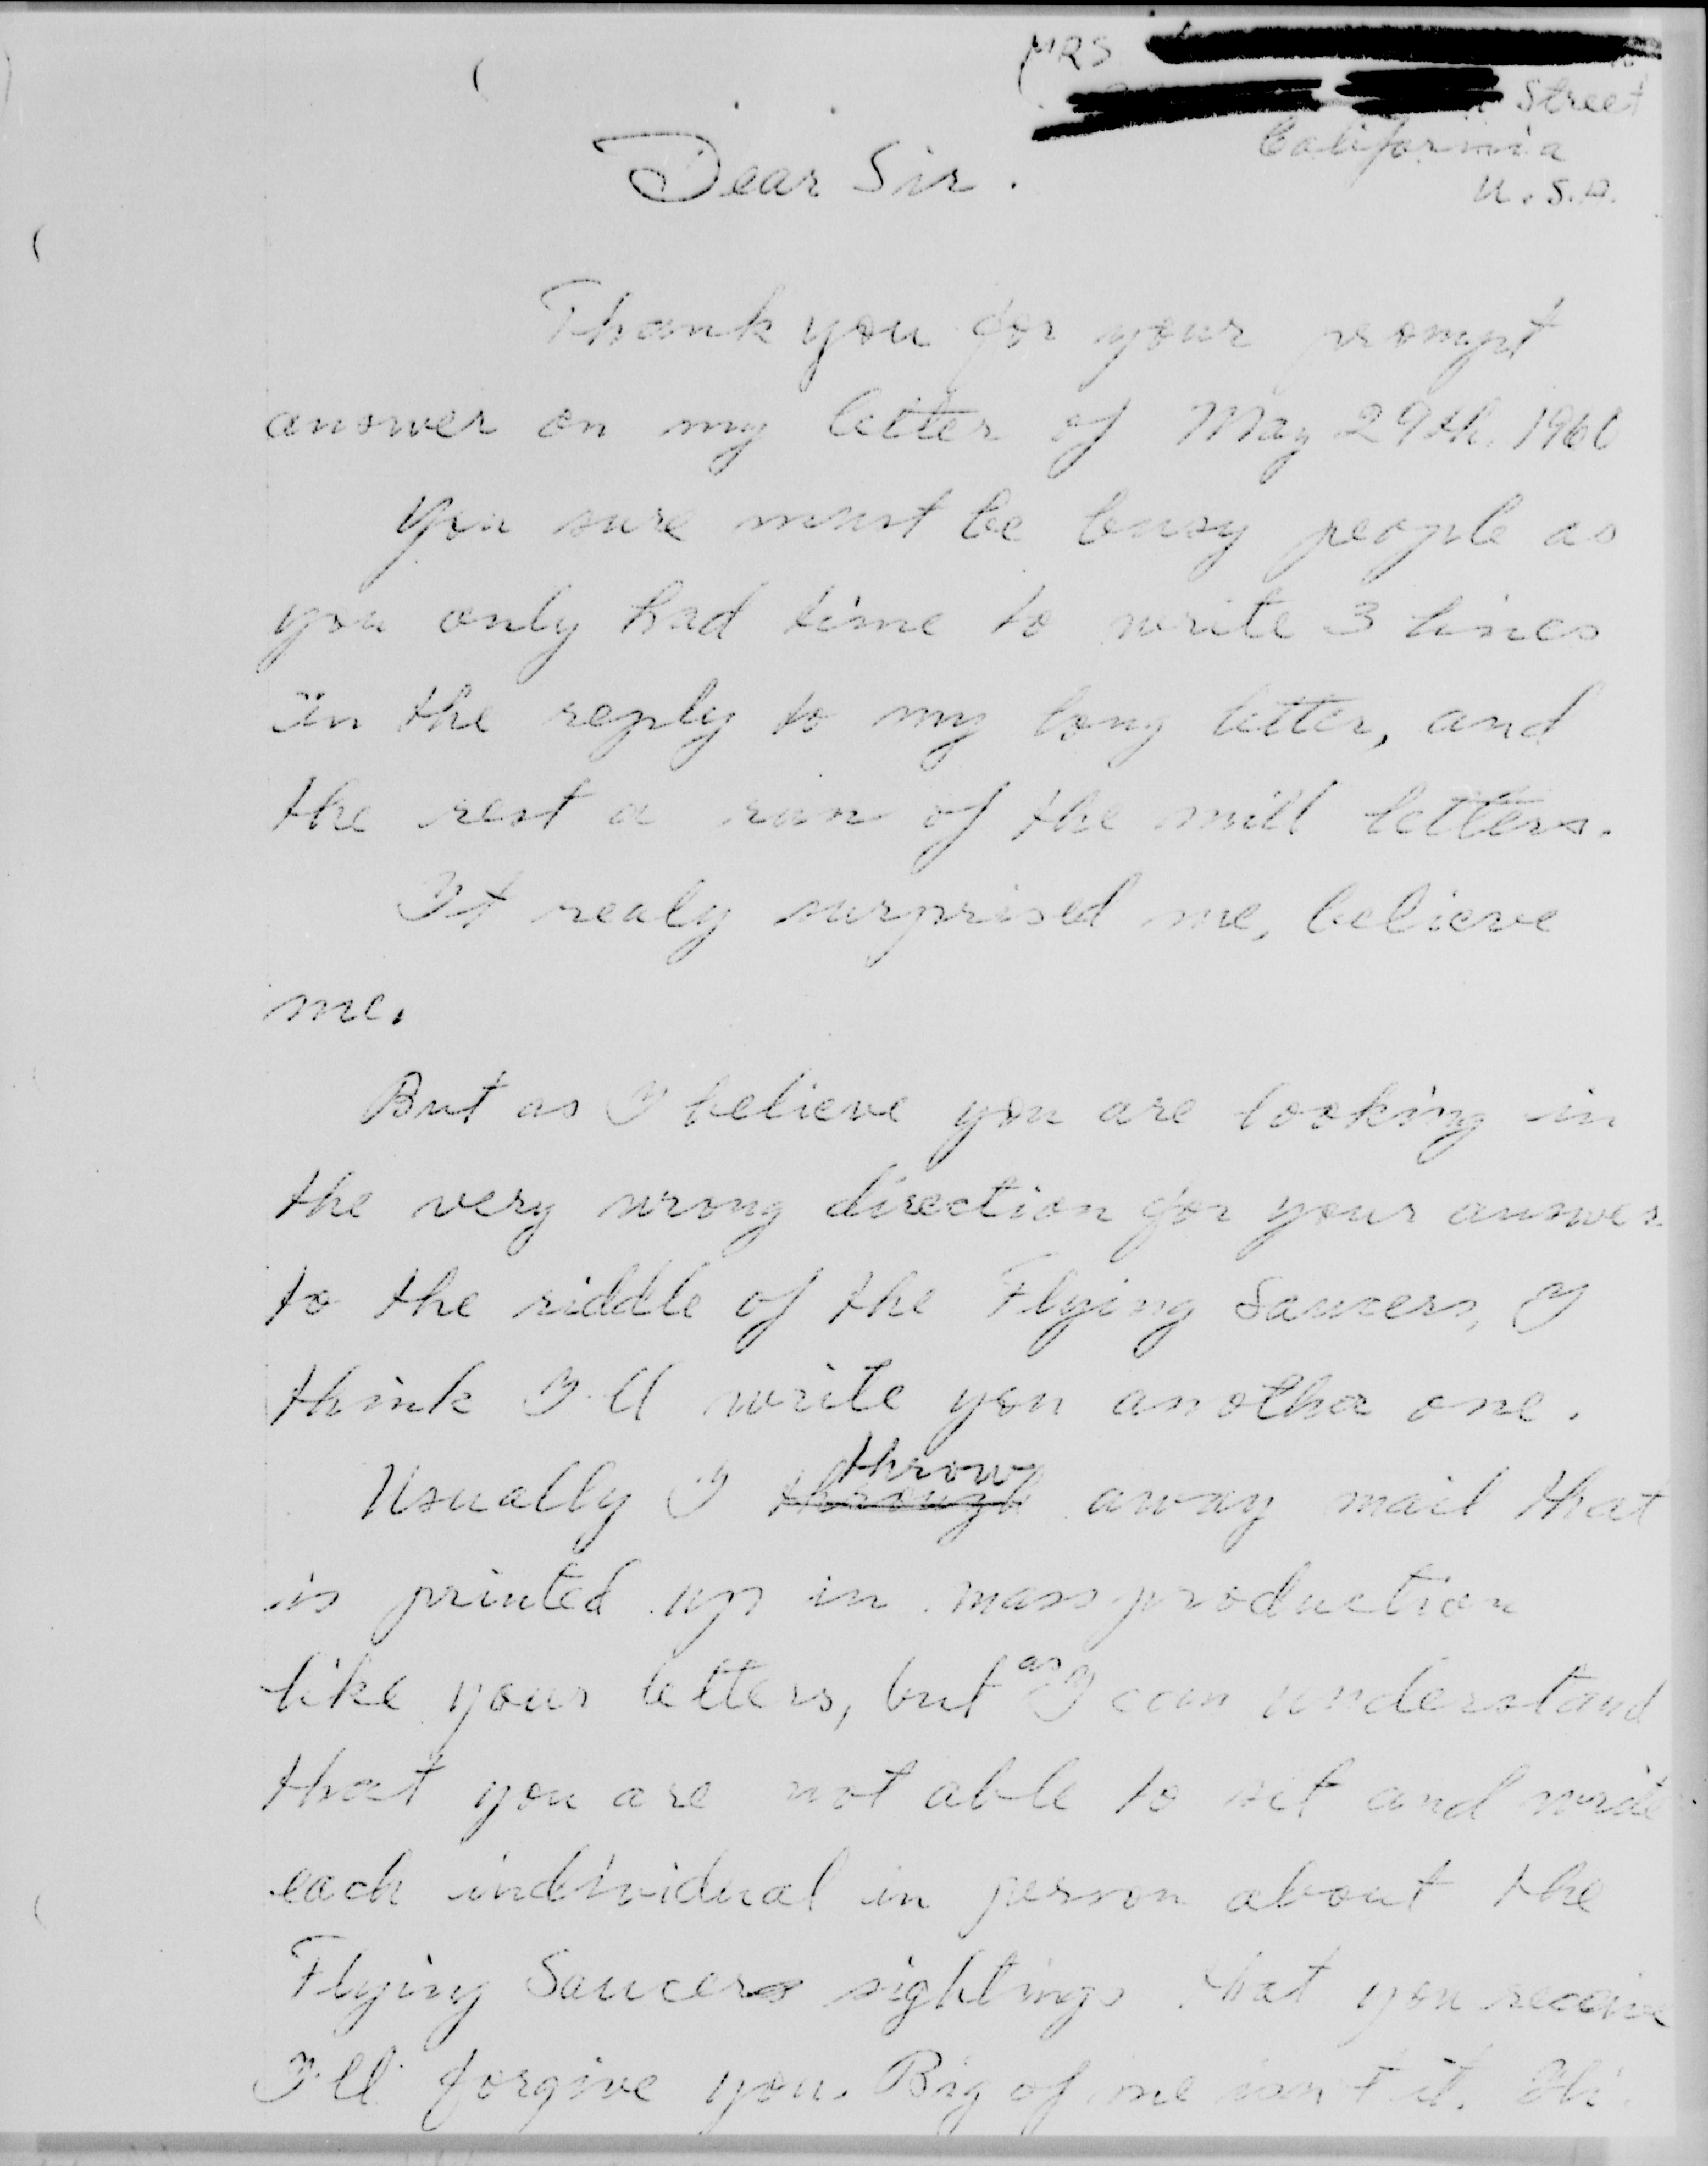 MRS
Street
California
U.S.A.
Dear Sir.
Thank you for your prompt
answer on my letter of May 29th. 1960
You sure must be busy people as
you only had time to write 3 lines
in the reply to my long letter, and
the rest a run of the mill letters.
It realy surprised me, believe
me.
But as I believe you are looking in
the very wrong direction for your answer
to the riddle of the Flying Saucers, I
think I'll write you another one.
throw
Usually I through away mail that
is printed up in mass production
as
like your letters, but I can understand
that you are not able to sit and write
each individual in person about the
Flying Saucers sightings that you receive
I'll forgive you. Big of me isn't it.